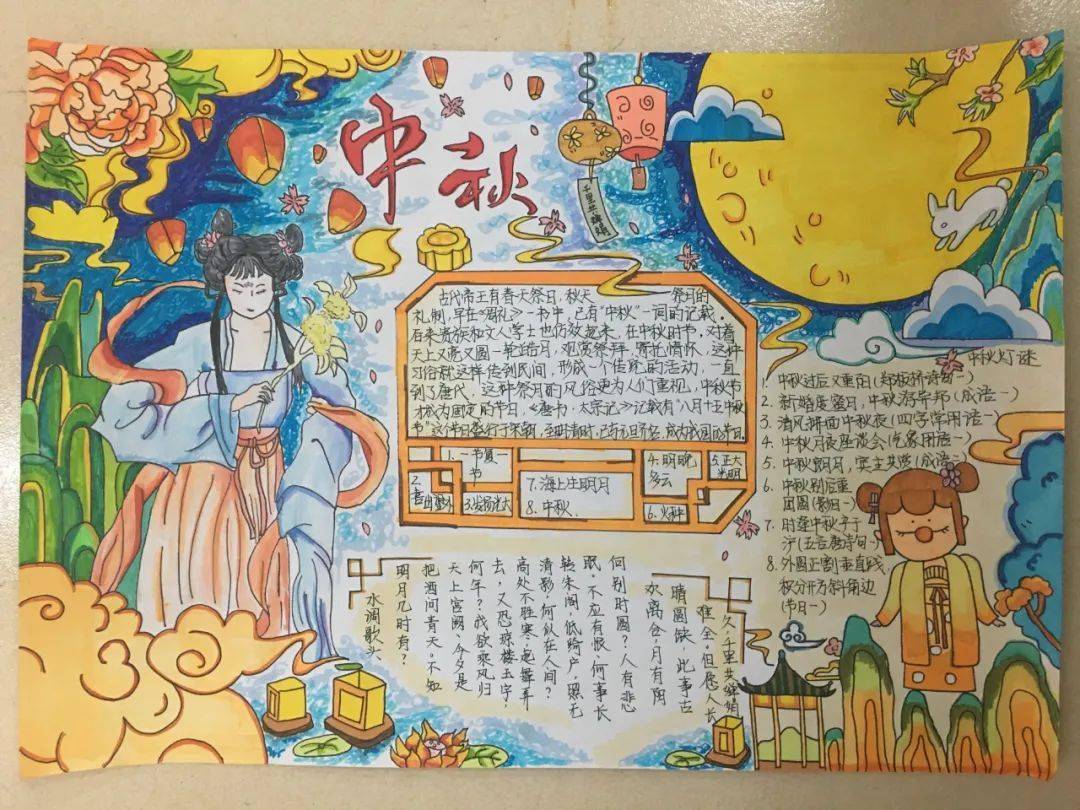 中秋
千里共婵娟
古代帝王有春天祭日,秋天 祭月的
礼制,早在《周礼》一书中,已有"中秋"一词的记载。
后来贵族和文人学士也仿效起来,在中秋时节,对着
天上又亮又圆一轮皓月,观赏祭拜,寄托情怀,这种
习俗就这样传到民间,形成一个传统的活动,一直
到了唐代,这种祭月的风俗更为人们重视,中秋节
才成为固定的节日,《唐书·太宗记》记载有"八月十五中秋
节"这个节日盛行于宋朝,至明清时,已与元旦齐名,成为我国的节日
1.一节复一节
2.
3.发扬光大
4.明晚多云
5.正大光明
6.火种
7.海上生明月
8.中秋
中秋灯谜
1.中秋过后又重阳(郑板桥诗句一)
2.新婚度蜜月,中秋游异邦(成语一)
3.清风拂面中秋夜(四字常用语一)
4.中秋月夜座谈会(气象用语一)
5.中秋朗月,宾主共赏(成语一)
6.中秋别后重
团圆(影目一)
7.时逢中秋子于
沪(五言唐诗句一)
8.外圆正割垂直线
积分开方斜角边
(节目一)
水调歌头
明月几时有?
把酒问青天。不知
天上宫阙,今夕是
何年?我欲乘风归
去,又恐琼楼玉宇,
高处不胜寒,起舞弄
清影,何似在人间?
转朱阁,低绮户,照无
眠。不应有恨,何事长
何别时圆?人有悲
欢离合,月有阴
晴圆缺,此事古
难全。但愿人长
久,千里共婵娟